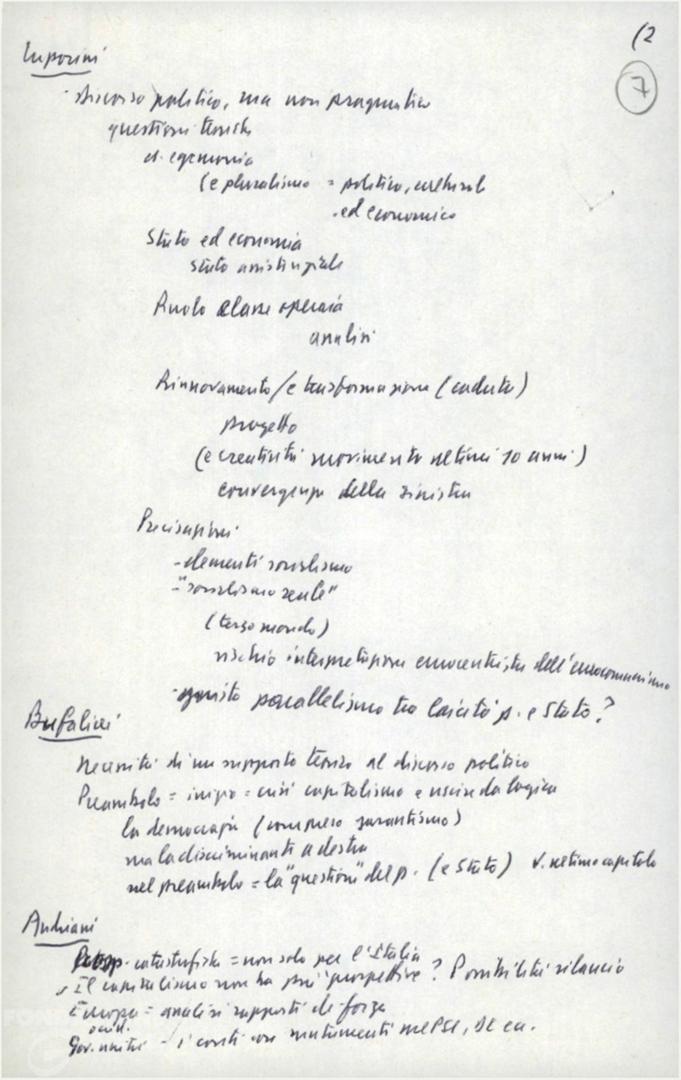 (2
7
Luporini
- discorso politico, ma non pragmatico
questioni teoriche
di egemonia
(e pluralismo = politico, culturale
ed economico
Stato ed economia
stato assistenziale
Ruolo classe operaia
analisi
Rinnovamento/e trasformazione (caduta)
progetto
(e creatività movimento ultimi 10 anni)
convergenze della sinistra
Precisazioni
- elementi socialismo
- "socialismo reale"
(terzo mondo)
rischio interpretazione eurocentrista dell'eurocomunismo
- giusto parallelismo tra laicità p. e Stato?
Bufalini
Necessità di un supporto teorico al discorso politico
Preambolo = inizio = crisi capitalismo e uscire da logica
la democrazia (compreso garantismo)
ma la discriminante a destra
nel preambolo = la "questione" del p. (e Stato) v. ultimo capitolo
Andriani
catastrofiche = non solo per l'Italia
Il capitalismo non ha più prospettive? Possibilità rilancio
Europa = analisi rapporti di forza
occid.
Gov. unità - i conti con mutamenti nel PSI, DC ecc.